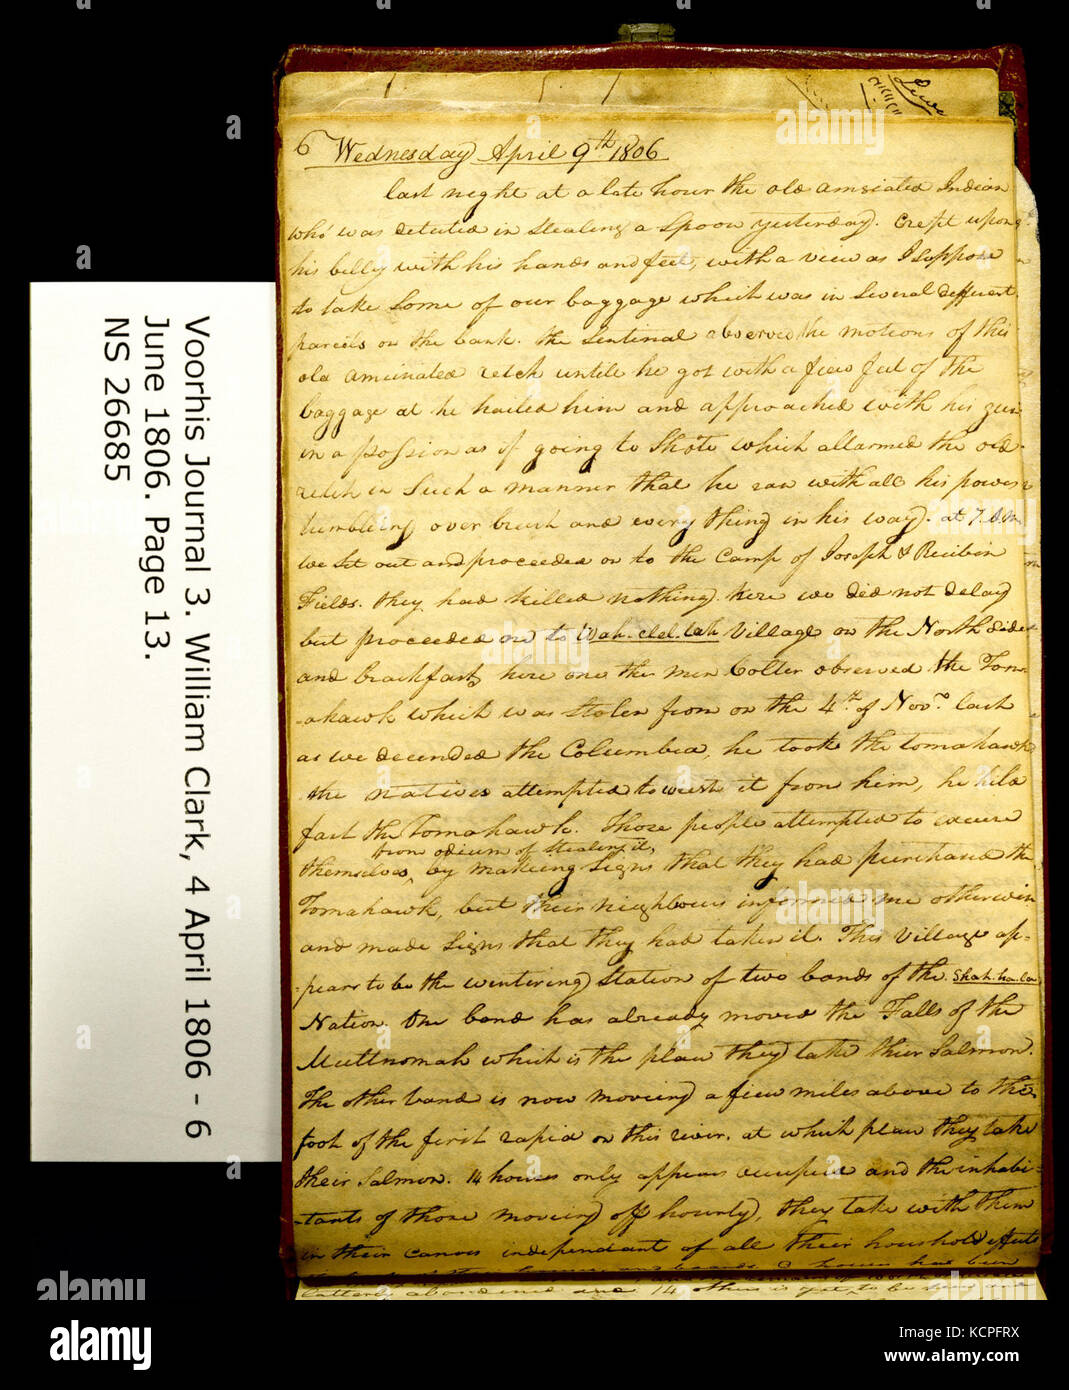 6 Wednesday April 9th 1806
last night at a late hour the old amsiated Indian
who was detected in Stealing a Spoon yesterday. Crept upon
his belly with his hands and feet, with a view as I suppose
to take Some of our baggage which was in Several different
parcels on the bank. the Sentinal observed the motions of this
old amcinated retch untill he got with a fiew feet of the
baggage at he hailed him and approached with his gun
in a possion as if going to Shote which allarmed the old
retch in Such a manner that he ran with all his power
tumbleing over brush and every thing in his way. at 7 A.M.
we Set out and proceeded on to the Camp of Joseph & Reubin
Fields. they had killed nothing. here we did not delay
but proceeded on to Wah-clel-lah Village on the North Side
and brackfast, here one the men Colter observed the Tom-
-ahawk which was Stolen from on the 4th of Novr. last
as we decended the Columbia, he took the tomahawk
the natives attempted to wrest it from him, he held
fast the Tomahawk. Those people attempted to excuse
from odium of Stealing it,
themselves, by makeing Signs that they had purchased the
Tomahawk, but their nighbours informed me otherwise
and made Signs that they had taken it. This Village ap-
-pears to be the wintering Station of two bands of the Shah-ha-la
Nation. One band has already moved the Falls of the
Multnomah which is the place they take their Salmon.
The other band is now moveing a fiew miles above to the
foot of the first rapid on this river. at which place they take
their Salmon. 14 houses only appear occupied and the inhabi-
-tants of those moveing off hourly, they take with them
in their canoes independant of all their houshold effects
latterly abandoned and 14 others is yet to be
Voorhis Journal 3. William Clark, 4 April 1806 - 6
June 1806. Page 13.
NS 26685
alamy
Image ID: KCPFRX
www.alamy.com